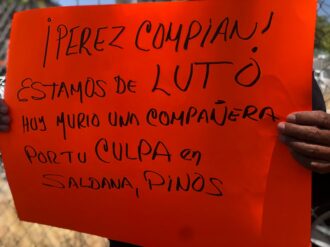 ¡PEREZ COMPIAN!
ESTAMOS DE LUTO
HOY MURIO UNA COMPAÑERA
POR TU CULPA en
SALDANA, PINOS